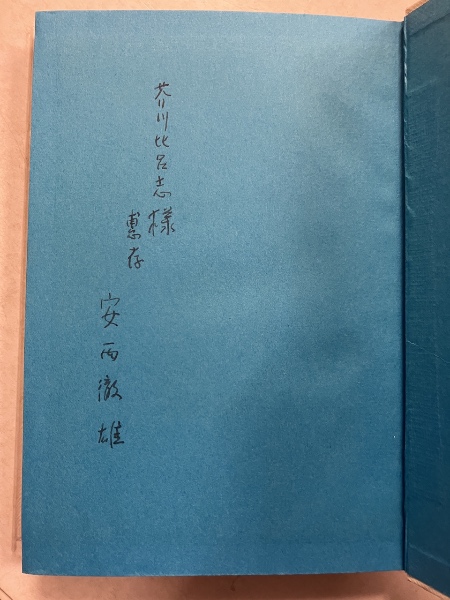 芥川比呂志様
恵存
安西徹雄